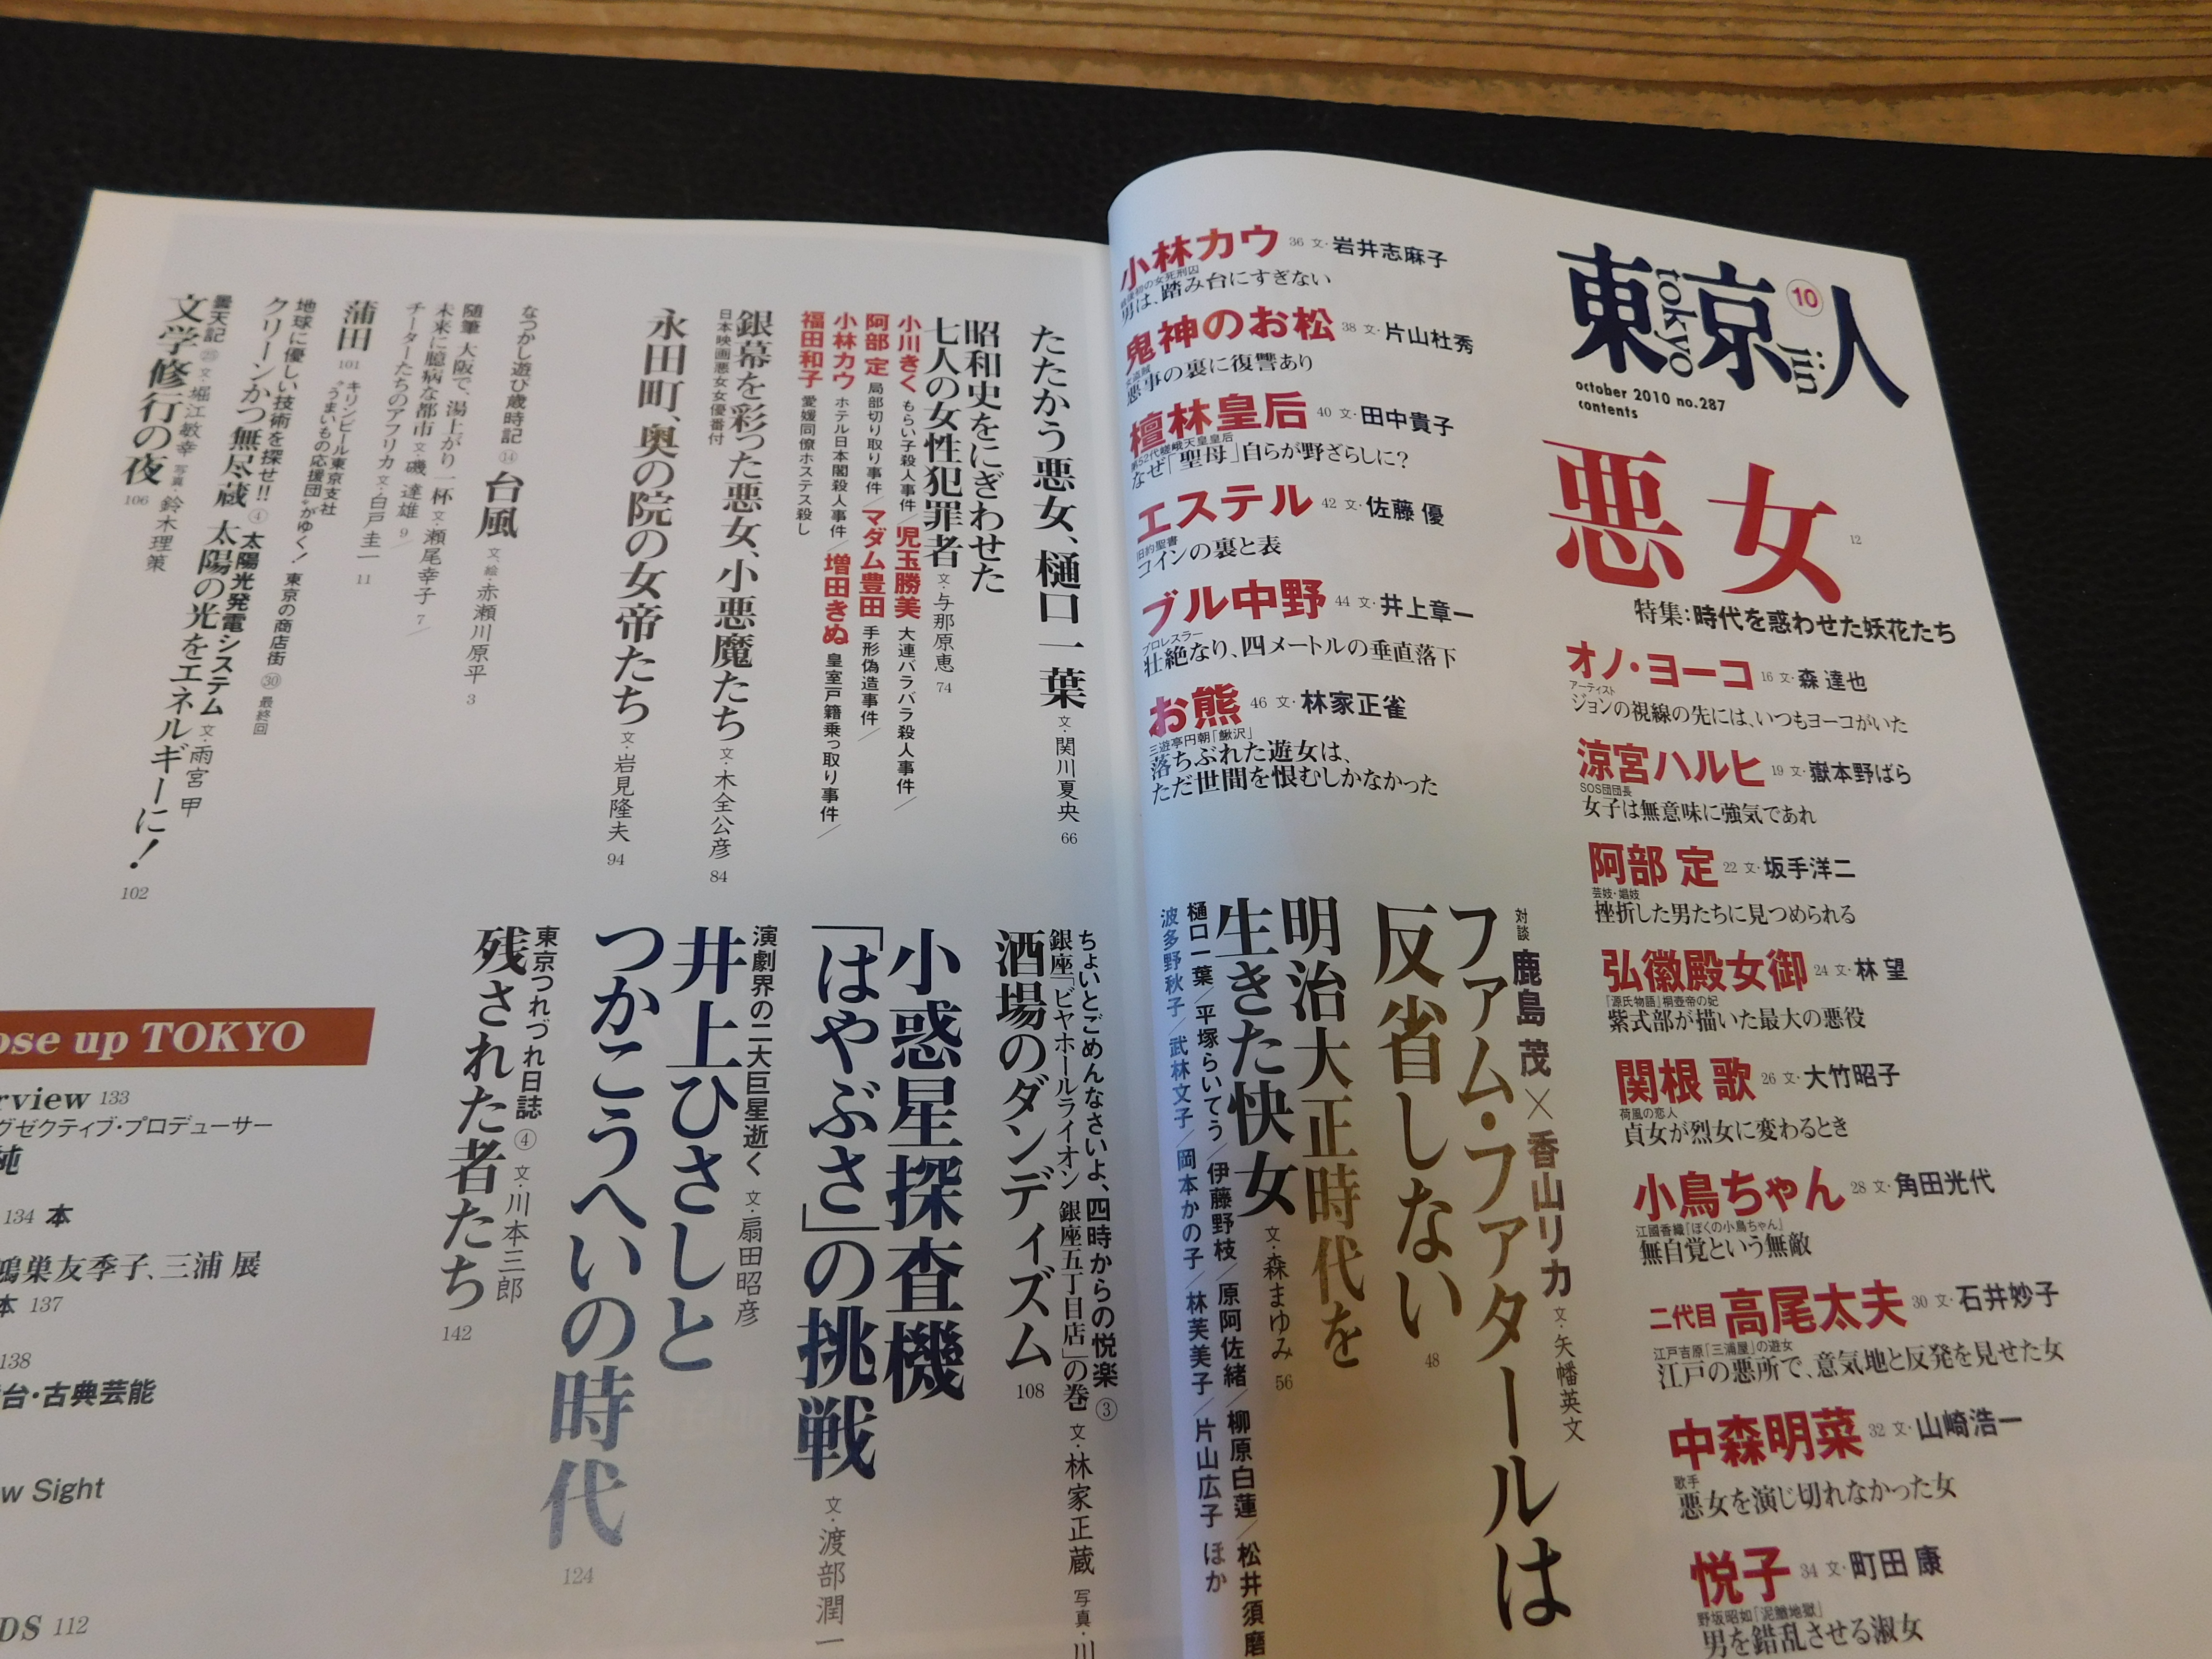 東京人
tokyo
jin
10
october 2010 no.287
contents
悪女
12
特集:時代を惑わせた妖花たち
オノ・ヨーコ 16 文・森 達也
アーティスト
ジョンの視線の先には、いつもヨーコがいた
涼宮ハルヒ 19 文・嶽本野ばら
SOS団団長
女子は無意味に強気であれ
阿部 定 22 文・坂手洋二
芸妓・娼妓
挫折した男たちに見つめられる
弘徽殿女御 24 文・林 望
『源氏物語』桐壺帝の妃
紫式部が描いた最大の悪役
関根 歌 26 文・大竹昭子
荷風の恋人
貞女が烈女に変わるとき
小鳥ちゃん 28 文・角田光代
江國香織『ぼくの小鳥ちゃん』
無自覚という無敵
二代目 高尾太夫 30 文・石井妙子
江戸吉原「三浦屋」の遊女
江戸の悪所で、意気地と反発を見せた女
中森明菜 32 文・山崎浩一
歌手
悪女を演じ切れなかった女
悦子 34 文・町田 康
野坂昭如「泥鰌地獄」
男を錯乱させる淑女
小林カウ 36 文・岩井志麻子
男は、踏み台にすぎない
鬼神のお松 38 文・片山杜秀
女盗賊
悪事の裏に復讐あり
檀林皇后 40 文・田中貴子
第52代嵯峨天皇皇后
なぜ「聖母」自らが野ざらしに?
エステル 42 文・佐藤 優
旧約聖書
コインの裏と表
ブル中野 44 文・井上章一
プロレスラー
壮絶なり、四メートルの垂直落下
お熊 46 文・林家正雀
三遊亭円朝「鰍沢」
落ちぶれた遊女は、
ただ世間を恨むしかなかった
対談 鹿島 茂×香山リカ 文・矢幡英文
ファム・ファタールは
反省しない 48
明治大正時代を
生きた快女 文・森まゆみ 56
樋口一葉/平塚らいてう/伊藤野枝/原阿佐緒/柳原白蓮/松井須磨
波多野秋子/武林文子/岡本かの子/林芙美子/片山広子 ほか
たたかう悪女、樋口一葉 文・関川夏央 66
昭和史をにぎわせた
七人の女性犯罪者 文・与那原恵 74
小川きく もらい子殺人事件/児玉勝美 大連バラバラ殺人事件/
阿部 定 局部切り取り事件/マダム豊田 手形偽造事件/
小林カウ ホテル日本閣殺人事件/増田きぬ 皇室戸籍乗っ取り事件/
福田和子 愛媛同僚ホステス殺し
銀幕を彩った悪女、小悪魔たち 文・木全公彦 84
日本映画悪女女優番付
永田町、奥の院の女帝たち 文・岩見隆夫 94
なつかし遊び歳時記⑭ 台風 文・絵・赤瀬川原平 3
随筆 大阪で、湯上がり一杯 文・瀬尾幸子 7/
未来に臆病な都市 文・磯 達雄 9/
チーターたちのアフリカ 文・白戸圭一 11
蒲田 101 キリンビール東京支社
“うまいもの応援団”がゆく! 東京の商店街㉚ 最終回
地球に優しい技術を探せ!!④ 太陽光発電システム 文・雨宮 甲
クリーンかつ無尽蔵 太陽の光をエネルギーに! 102
曇天記 文・堀江敏幸 写真・鈴木理策
文学修行の夜 106
ちょいとごめんなさいよ、四時からの悦楽③
銀座「ビヤホールライオン 銀座五丁目店」の巻 文・林家正蔵 写真・川
酒場のダンディズム 108
小惑星探査機
「はやぶさ」の挑戦 文・渡部潤一
演劇界の二大巨星逝く 文・扇田昭彦
井上ひさしと
つかこうへいの時代 124
東京つれづれ日誌④ 文・川本三郎
残された者たち 142
ose up TOKYO
rview 133
グゼクティブ・プロデューサー
純
134 本
鴻巣友季子、三浦 展
本 137
138
台・古典芸能
w Sight
DS 112